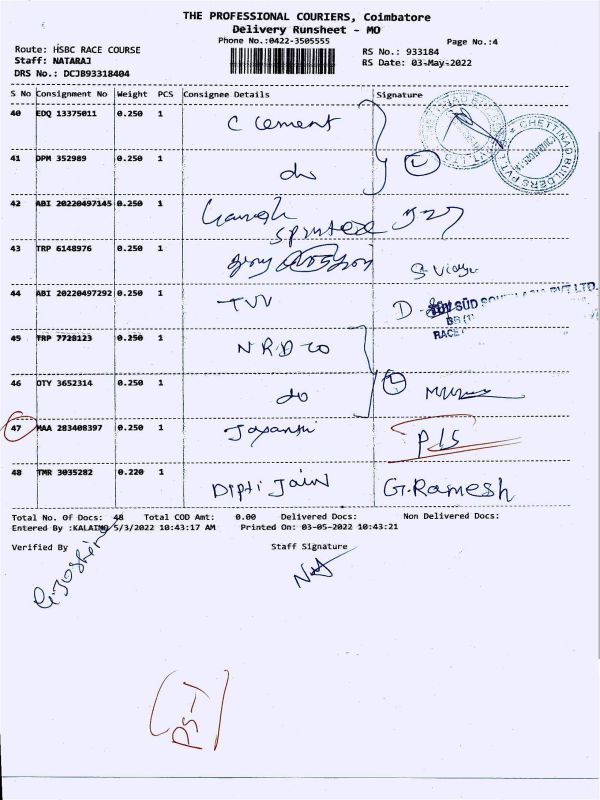 THE PROFESSIONAL COURIERS, Coimbatore
Delivery Runsheet - MO
Phone No.:0422-3505555
Page No.:4
Route: HSBC RACE COURSE
RS No.: 933184
Staff: NATARAJ
RS Date: 03-May-2022
DRS No.: DCJB93318404
S No Consignment No Weight PCS Consignee Details Signature
40 EDQ 13375011 0.250 1 C Cement
41 DPM 352989 0.250 1 do
CHETTINAD BUILDERS PVT
42 ABI 20220497145 0.250 1 Ganesh
43 TRP 6148976 0.250 1
44 ABI 20220497292 0.250 1 TVV D
SÜD PVT LTD.
RACE
45 TRP 7728123 0.250 1 NRD co
46 OTY 3652314 0.250 1 do
47 MAA 283408397 0.250 1 Jayanthi P/S
48 TMR 3035282 0.220 1 Dipti Jain G.Ramesh
Total No. Of Docs: 48 Total COD Amt: 0.00 Delivered Docs: Non Delivered Docs:
Entered By :KALAIMO 5/3/2022 10:43:17 AM Printed On: 03-05-2022 10:43:21
Verified By Staff Signature
PS-1